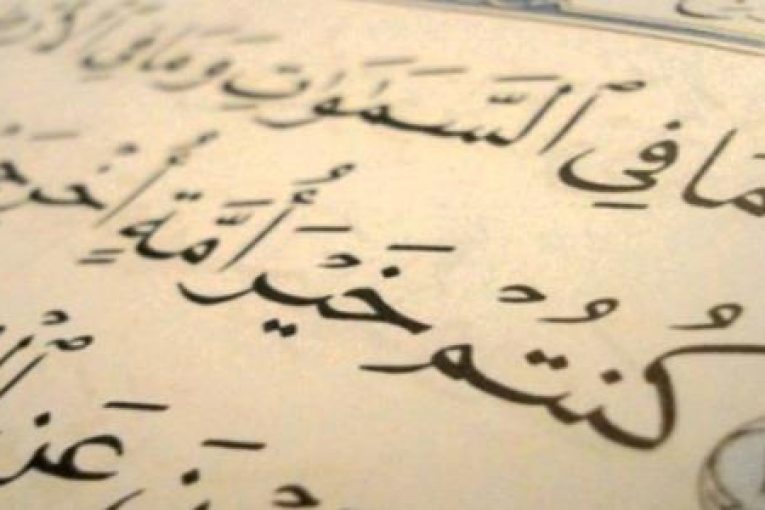 مَا فِي ٱلسَّمَٰوَٰتِ وَمَا فِي
كُنتُمْ خَيْرَ أُمَّةٍ أُخْرِجَ
عَنِ